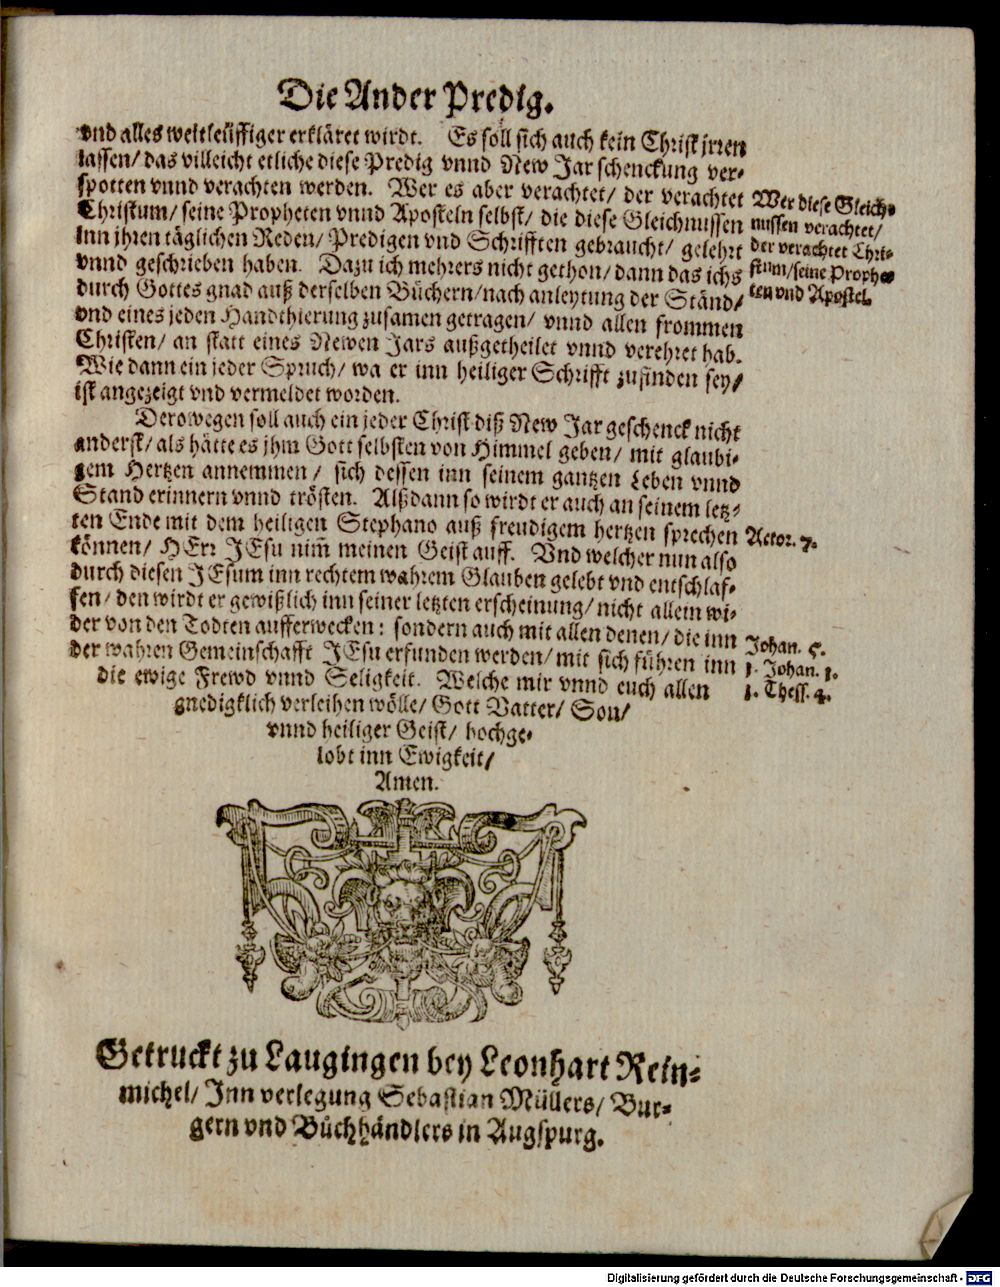 Die Ander Predig.
vnd alles weitleüffiger erkläret wirdt. Es soll sich auch kein Christ jrren
lassen/ das villeicht etliche diese Predig vnnd New Jar schenckung ver-
spotten vnnd verachten werden. Wer es aber verachtet/ der verachtet
Christum/ seine Propheten vnnd Aposteln selbst/ die diese Gleichnussen
inn jhren täglichen Reden/ Predigen vnd Schrifften gebraucht/ gelehrt
vnnd geschrieben haben. Dazu ich mehrers nicht gethon/ dann das ichs
durch Gottes gnad auß derselben Büchern/ nach anleytung der Ständ/
vnd eines jeden Handthierung zusamen getragen/ vnnd allen frommen
Christen/ an statt eines Newen Jars außgetheilet vnnd verehret hab.
Wie dann ein jeder Spruch/ wa er inn heiliger Schrifft zufinden sey/
ist angezeigt vnd vermeldet worden.
Wer diese Gleich-
nussen verachtet/
der verachtet Chri-
stum/ seine Prophe-
ten vnd Apostel.
Derowegen soll auch ein jeder Christ diß New Jar geschenck nicht
anderst/ als hätte es jhm Gott selbsten von Himmel geben/ mit glaubi-
gem Hertzen annemmen/ sich dessen inn seinem gantzen Leben vnnd
Stand erinnern vnnd trösten. Alßdann so wirdt er auch an seinem letz-
ten Ende mit dem heiligen Stephano auß freudigem hertzen sprechen
können/ HErr JEsu nim̄ meinen Geist auff. Vnd welcher nun also
durch diesen JEsum inn rechtem wahrem Glauben gelebt vnd entschlaf-
fen/ den wirdt er gewißlich inn seiner letzten erscheinung/ nicht allein wi-
der von den Todten aufferwecken: sondern auch mit allen denen/ die inn
der wahren Gemeinschafft JEsu erfunden werden/ mit sich führen inn
die ewige Frewd vnnd Seligkeit. Welche mir vnnd euch allen
gnedigklich verleihen wölle/ Gott Vatter/ Son/
vnnd heiliger Geist/ hochge-
lobt inn Ewigkeit/
Amen.
Actor. 7.
Johan. 5.
1. Johan. 1.
1. Thess. 4.
Getruckt zu Laugingen bey Leonhart Rein-
michel/ Inn verlegung Sebastian Müllers/ Bur-
gern vnd Bůchhändlers in Augspurg.
Digitalisierung gefördert durch die Deutsche Forschungsgemeinschaft - DFG